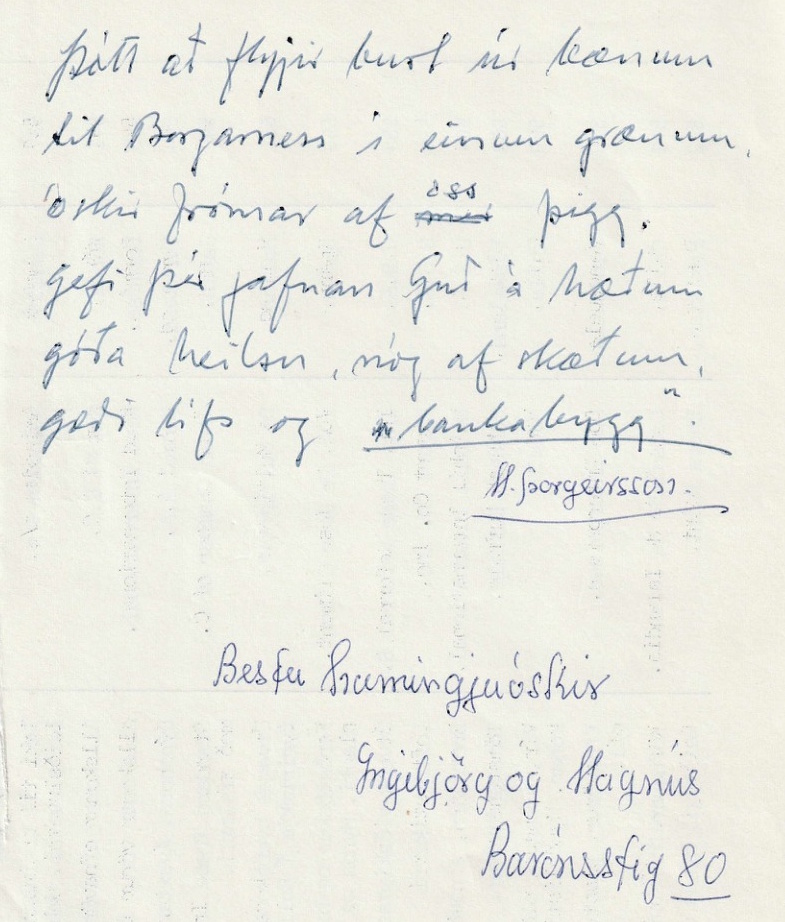 Þótt að flýir burt úr bænum
til Borgarness í einum grænum,
óskir frómar af oss þigg.
gefi þér jafnan Guð á hætum
góða heilsu, nóg af skætum,
gæði lífs og „bankabygg".
M. Þorgeirsson.
Bestu hamingjuóskir
Ingibjörg og Magnús
Barónsstíg 80